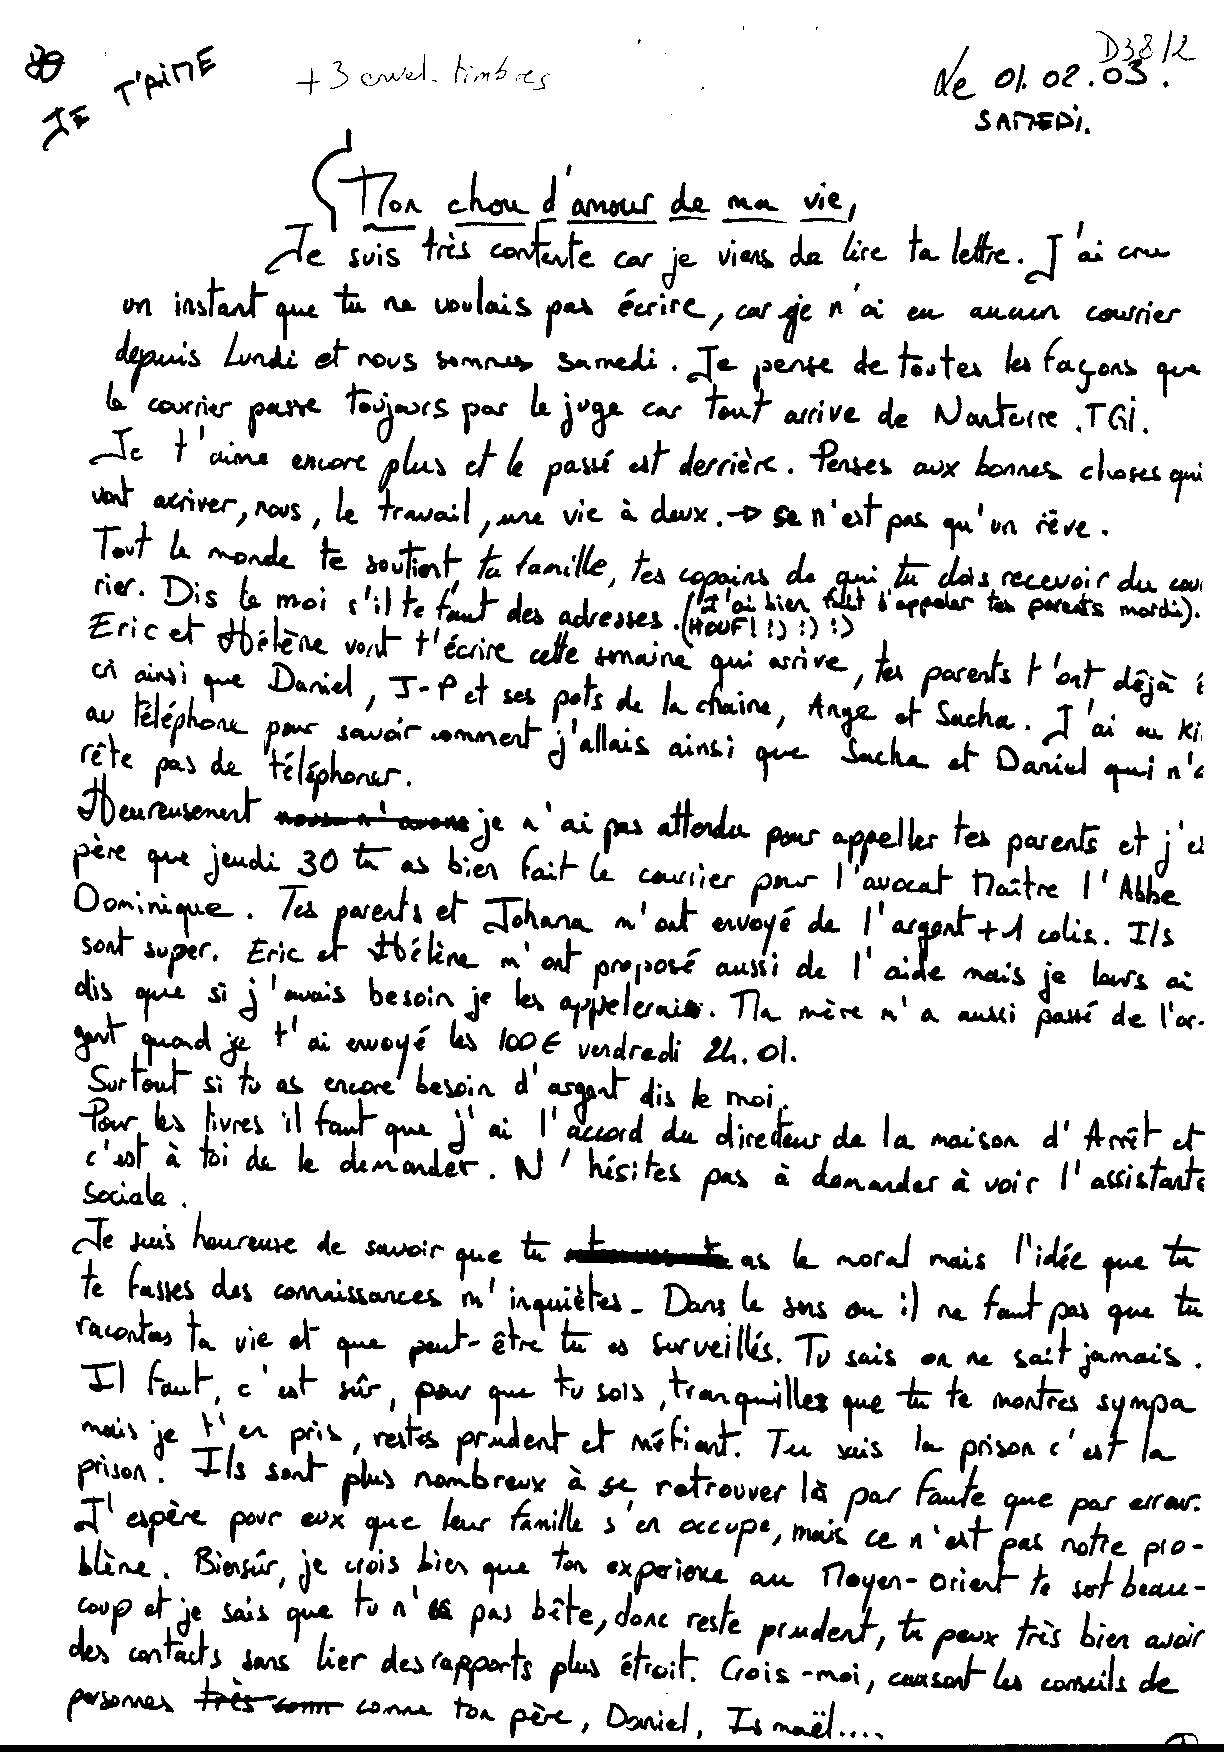 D38/2
JE T'AIME
+3 envel. timbres
Le 01.02.03.
SAMEDI.
Mon chou d'amour de ma vie,
Je suis très contente car je viens de lire ta lettre. J'ai cru
un instant que tu ne voulais pas écrire, car je n'ai eu aucun courrier
depuis Lundi et nous sommes samedi. Je pense de toutes les façons que
le courrier passe toujours par le juge car tout arrive de Nanterre .TGI.
Je t'aime encore plus et le passé est derrière. Penses aux bonnes choses qui
vont arriver, nous, le travail, une vie à deux. → se n'est pas qu'un rêve.
Tout le monde te soutient, ta famille, tes copains de qui tu dois recevoir du cou
rier. Dis le moi s'il te faut des adresses. (J'ai bien fait d'appeler tes parents mardi).
(HOUF! !) !) !)
Eric et Hélène vont t'écrire cette semaine qui arrive, tes parents t'ont déjà é
cri ainsi que Daniel, J-P et ses pots de la chaine, Ange et Sacha. J'ai eu Ki
au téléphone pour savoir comment j'allais ainsi que Sacha et Daniel qui n'a
rête pas de téléphoner.
Heureusement nous n'avons je n'ai pas attendu pour appeller tes parents et j'es
père que jeudi 30 tu as bien fait le courrier pour l'avocat Maître l'Abbe
Dominique. Tes parents et Johana m'ont envoyé de l'argent +1 colis. Ils
sont super. Eric et Hélène m'ont proposé aussi de l'aide mais je leurs ai
dis que si j'avais besoin je les appelerais. Ma mère m'a aussi passé de l'ar-
gent quand je t'ai envoyé les 100€ vendredi 24.01.
Surtout si tu as encore besoin d'argent dis le moi.
Pour les livres il faut que j'ai l'accord du directeur de la maison d'Arrêt et
c'est à toi de le demander. N'hésites pas à demander à voir l'assistante
sociale.
Je suis heureuse de savoir que tu as le moral mais l'idée que tu
te fasses des connaissances m'inquiètes - Dans le sens ou il ne faut pas que tu
racontes ta vie et que peut-être tu es surveillés. Tu sais on ne sait jamais.
Il faut, c'est sûr, pour que tu sois, tranquilles que tu te montres sympa
mais je t'en pris, restes prudent et méfiant. Tu sais la prison c'est la
prison. Ils sont plus nombreux à se retrouver là par faute que par erreur.
J'espère pour eux que leur famille s'en occupe, mais ce n'est pas notre pro-
blème. Biensûr, je crois bien que ton experience au Moyen-orient te sert beau-
coup et je sais que tu n'es pas bête, donc reste prudent, tu peux très bien avoir
des contacts sans lier des rapports plus étroit. Crois-moi, ce sont les conseils de
personnes très comm comme ton père, Daniel, Ismaël....